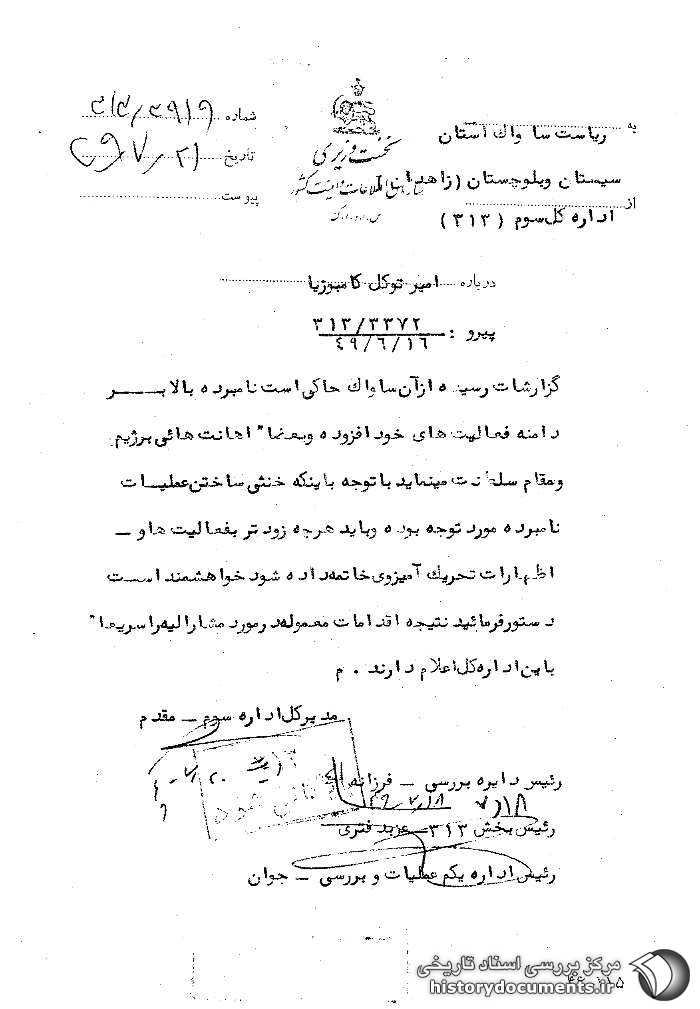 به ریاست ساواک استان
سیستان و بلوچستان (زاهدان)
از اداره کل سوم (۳۱۳)
نخست وزیری
سازمان اطلاعات و امنیت کشور
س.ا.و.ا.ک
شماره
تاریخ
پیوست
درباره امیر توکل کامبوزیا
پیرو : ۳۱۳/۳۳۷۲
۴۹/۶/۱۶
گزارشات رسیده از آن ساواک حاکی است نامبرده بالا بــر
دامنه فعالیت های خود افزوده و بعضا" اهانت هائی برژیم
و مقام سلطنت مینماید با توجه باینکه خنثی ساختن عملیات
نامبرده مورد توجه بوده و باید هرچه زود تر بفعالیت ها و –
اظهارات تحریک آمیز وی خاتمه داده شود خواهشمند است
دستور فرمائید نتیجه اقدامات معموله در مورد مشارالیه را سریعا"
باین اداره کل اعلام دارند . م
مدیر کل اداره سوم – مقدم
رئیس دایره بررسی – فرزانه
۴۹/۷/۱۸ ۷/۱۸
رئیس بخش ۳۱۳ –
رئیس اداره یکم عملیات و بررسی – جوان
مرکز بررسی اسناد تاریخی
historydocuments.ir